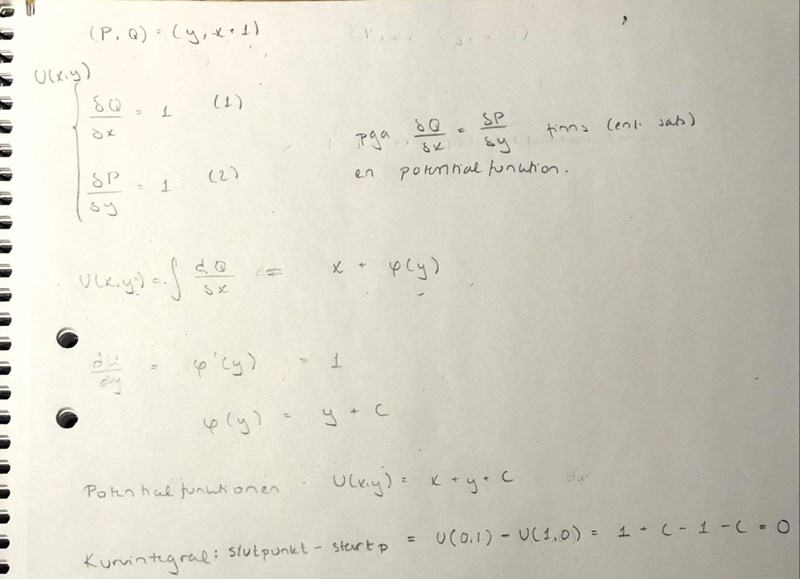 (P, Q) = (y, x + 1)
U(x,y)
δQ/δx = 1 (1)
pga δQ/δx = δP/δy finns (enl. sats)
δP/δy = 1 (2)
en potentialfunktion.
U(x,y) = ∫ dQ/δx = x + φ(y)
du/dy = φ'(y) = 1
φ(y) = y + C
Potentialfunktionen U(x,y) = x + y + C
Kurvintegral: slutpunkt - startp = U(0,1) - U(1,0) = 1 + C - 1 - C = 0